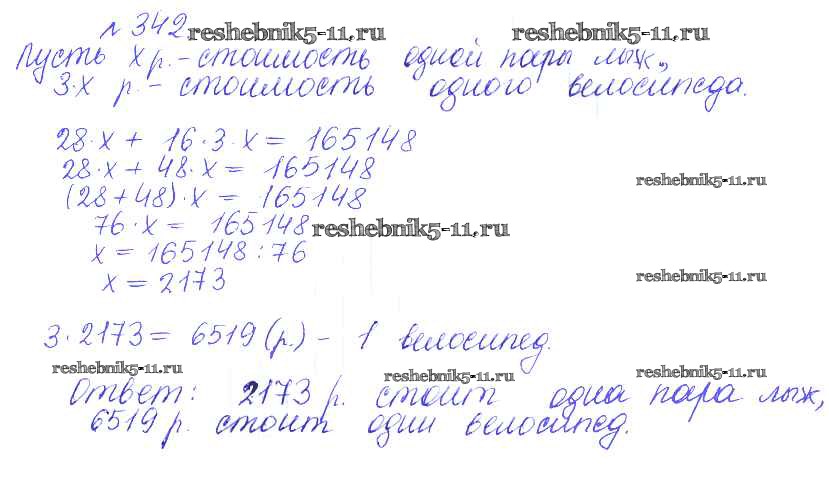 № 342 reshebnik5-11.ru reshebnik5-11.ru
Пусть х р. - стоимость одной пары лыж,
3·х р. - стоимость одного велосипеда.
28·х + 16·3·х = 165148
28·х + 48·х = 165148
reshebnik5-11.ru
(28+48)·х = 165148
76·х = 165148 reshebnik5-11.ru
х = 165148 : 76
х = 2173 reshebnik5-11.ru
3·2173 = 6519 (р.) - 1 велосипед.
reshebnik5-11.ru reshebnik5-11.ru reshebnik5-11.ru
Ответ: 2173 р. стоит одна пара лыж,
6519 р. стоит один велосипед.